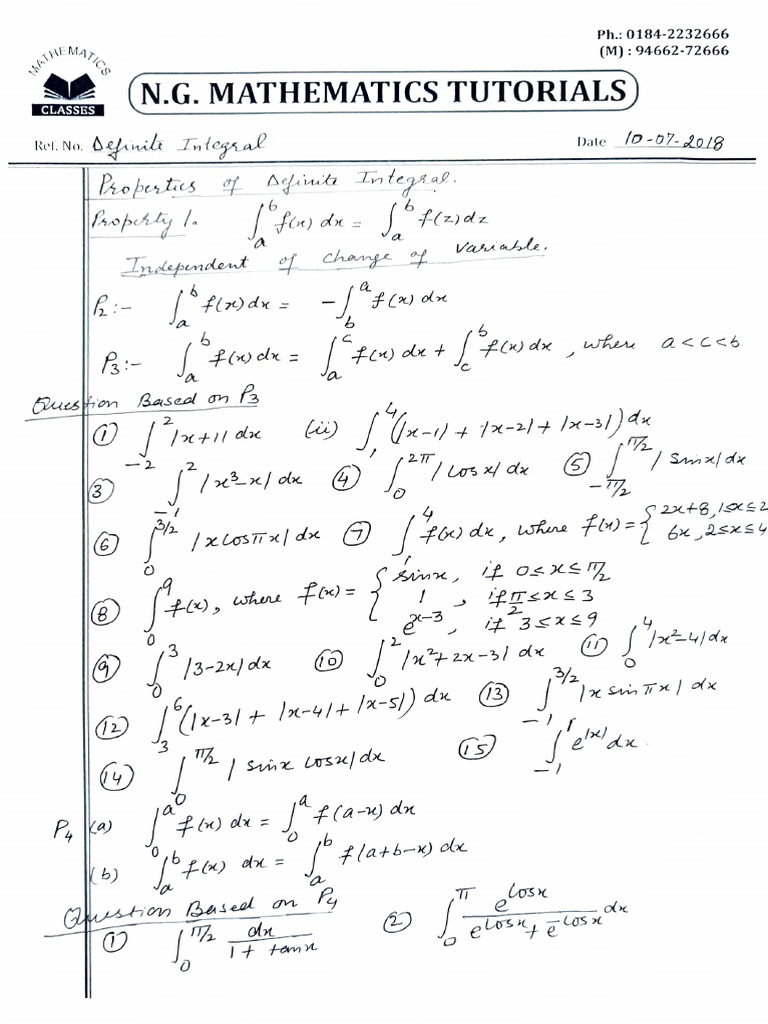 Ph.: 0184-2232666
(M) : 94662-72666
MATHEMATICS
CLASSES
N.G. MATHEMATICS TUTORIALS
Ref. No. Definite Integral Date 10-07-2018
Properties of Definite Integral.
Property 1. ∫_a^b f(x) dx = ∫_a^b f(z) dz
Independent of change of variable.
P₂ :- ∫_a^b f(x) dx = -∫_b^a f(x) dx
P₃ :- ∫_a^b f(x) dx = ∫_a^c f(x) dx + ∫_c^b f(x) dx , where a < c < b
Question Based on P₃
① ∫_{-2}^2 |x+1| dx (ii) ∫_1^4 (|x-1| + |x-2| + |x-3|) dx
③ ∫_{-1}^2 |x³-x| dx ④ ∫_0^{2π} |cosx| dx ⑤ ∫_{-π/2}^{π/2} |sinx| dx
⑥ ∫_0^{3/2} |x cosπx| dx ⑦ ∫_1^4 f(x) dx, where f(x) = { 2x+8, 1≤x≤2
6x, 2≤x≤4
⑧ ∫_0^9 f(x), where f(x) = { sinx, if 0≤x≤π/2
1, if π/2≤x≤3
e^{x-3}, if 3≤x≤9
⑨ ∫_0^3 |3-2x| dx ⑩ ∫_0^2 |x²+2x-3| dx ⑪ ∫_0^4 |x²-4| dx
⑫ ∫_3^6 (|x-3| + |x-4| + |x-5|) dx ⑬ ∫_{-1}^{3/2} |x sinπx| dx
⑭ ∫_0^{π/2} |sinx cosx| dx ⑮ ∫_{-1}^1 e^{|x|} dx.
P₄ (a) ∫_0^a f(x) dx = ∫_0^a f(a-x) dx
(b) ∫_a^b f(x) dx = ∫_a^b f(a+b-x) dx
Question Based on P₄
① ∫_0^{π/2} dx/(1 + tanx) ② ∫_0^π e^{cosx}/(e^{cosx} + e^{-cosx}) dx